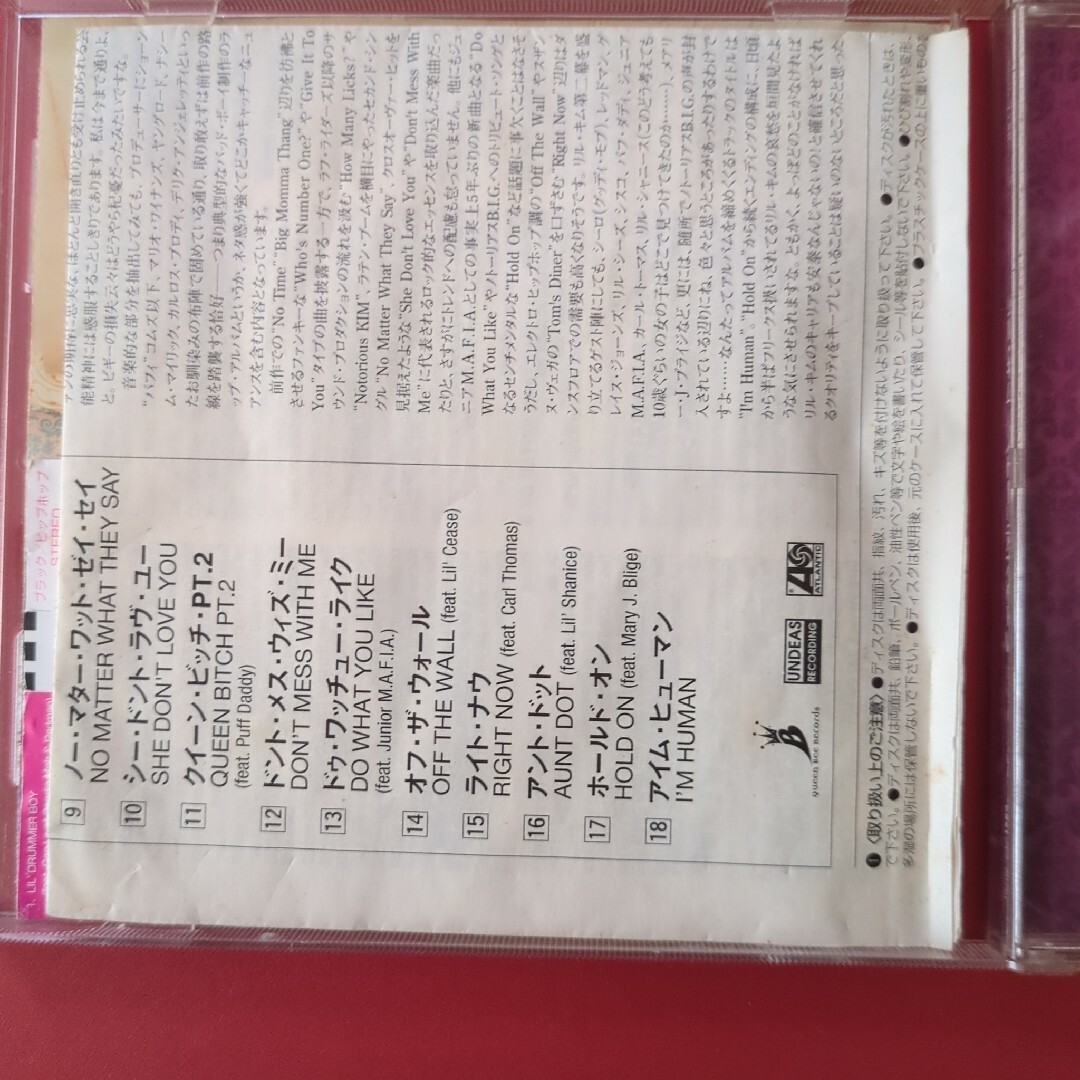 能精神には感服することしきりであります。私は今まで通りよ、
と、ビギーの損失云々はどうやら杞憂だったみたいですな。
音楽的な部分を抽出してみても、プロデューサーにショーン
“パフィ”コムズ以下、マリオ・ワイナンズ、ヤングロード、ナシー
ム・マイリック、カルロス・ブロディ、デリケ・アンジェレッティといっ
たお馴染みの布陣で固めている通り、取り敢えずは前作の路
線を踏襲する恰好——つまり典型的なバッド・ボーイ制作のラ
ップ・アルバムというか、ネタ感が強くてどこかキャッチーなニュ
アンスを含む内容となっています。
前作での“No Time”“Big Momma Thang”辺りを彷彿と
させるファンキーな“Who's Number One?”や“Give It To
You”タイプの曲を披露する一方で、ラフ・ライダーズ以降のサ
ウンド・プロダクションの流れを汲む“How Many Licks?”や
“Notorious KIM”、ラテン・ブームを横目にやったセカンド・シン
グル“No Matter What They Say”、クロスオーヴァー・ヒットを
見据えたような“She Don't Love You”や“Don't Mess With
Me”に代表されるロック的なエッセンスを取り込んだ楽曲だっ
たりと、さすがにトレンドへの配慮も怠っていません。他にもジュ
ニアM.A.F.I.A.としての事実上5年ぶりの新曲となる“Do
What You Like”やノトーリアスB.I.G.へのトリビュート・ソングと
なるセンチメンタルな“Hold On”など話題に事欠くことはなさそ
うだし、エレクトロ・ヒップホップ調の“Off The Wall”やスザン
ヌ・ヴェガの“Tom's Diner”を口ずさむ“Right Now”辺りはダ
ンスフロアでの需要も高くなりそうです。リル・キム第二幕を盛
り立てるゲスト陣にしても、シーロ（グッディ・モブ）、レッドマン、グ
レイス・ジョーンズ、リル・シーズ、シスコ、パフ・ダディ、ジュニア
M.A.F.I.A.、カール・トーマス、リル・シャニース（このどう考えても
10歳ぐらいの女の子はどこで見つけてきたのか……）、メアリ
ー・J・ブライジなど、更には、随所でノトーリアスB.I.G.の声が封
入されている辺りにね、色々と思うところがあったりするわけで
すよ……なんたってアルバムを締めくくるトラックのタイトルは
“I'm Human”。“Hold On”から続くエンディングの構成に、日頃
から半ばフリークス扱いされてるリル・キムの哀愁を垣間見たよ
うな気にさせられますな。ともかく、よっぽどのことがなければ
リル・キムのキャリアも安泰なんじゃないの、と確信させてくれ
るクオリティをキープしていることは疑いのないところだと思った
9 ノー・マター・ワット・ゼイ・セイ
NO MATTER WHAT THEY SAY
10 シー・ドント・ラヴ・ユー
SHE DON'T LOVE YOU
11 クイーン・ビッチ・PT.2
QUEEN BITCH PT.2
(feat. Puff Daddy)
12 ドント・メス・ウィズ・ミー
DON'T MESS WITH ME
13 ドゥ・ワッチュー・ライク
DO WHAT YOU LIKE
(feat. Junior M.A.F.I.A.)
14 オフ・ザ・ウォール
OFF THE WALL (feat. Lil' Cease)
15 ライト・ナウ
RIGHT NOW (feat. Carl Thomas)
16 アント・ドット
AUNT DOT (feat. Lil' Shanice)
17 ホールド・オン
HOLD ON (feat. Mary J. Blige)
18 アイム・ヒューマン
I'M HUMAN
queen bee records
UNDEAS
RECORDING
ATLANTIC
❶〈取り扱い上のご注意〉●ディスクは両面共、指紋、汚れ、キズ等を付けないように取り扱って下さい。●ディスクが汚れたときは、
で下さい。●ディスクは両面共、鉛筆、ボールペン、油性ペン等で文字や絵を書いたり、シール等を貼付しないで下さい。●ひび割れや変形、
多湿の場所には保管しないで下さい。●ディスクは使用後、元のケースに入れて保管して下さい。●プラスチックケースの上に重いものを
ブラック/ヒップホップ
STEREO
1. LIL' DRUMMER BOY